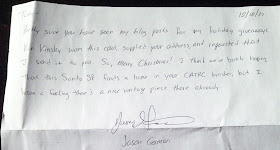 Tom,
15/12/21
Pretty sure you have seen my blog posts for my holiday giveaways
Kin Kinsley won this card, supplied your address, and requested that
I send it to you. So, Merry Christmas! I think we're both hoping
that this Santo SP finds a home in your CATRC binder, but I
have a feeling there's a nice vintage piece there already.
Jason
Jason German